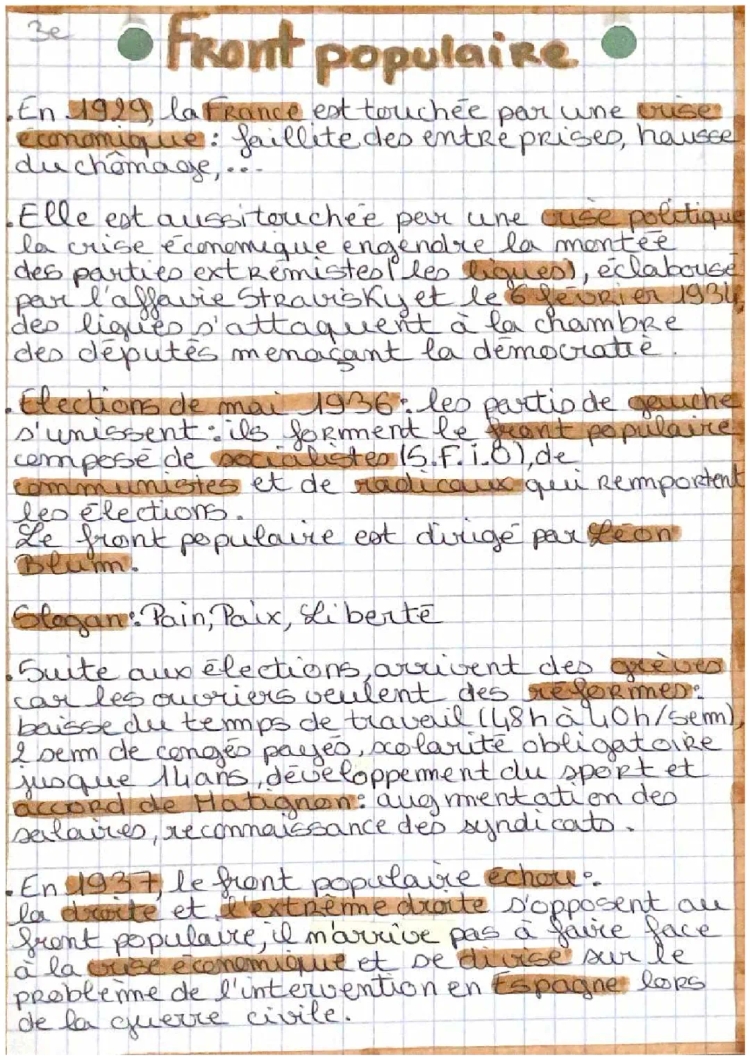 3e
Front populaire
. En 1929, la France est touchée par une crise
économique : faillite des entreprises, hausse
du chômage, ...
. Elle est aussi touchée par une crise politique
la crise économique engendre la montée
des parties extrémistes (les ligues), éclaboussé
par l'affaire Stravisky et le 6 février 1934,
des ligues s'attaquent à la chambre
des députés menaçant la démocratie.
. Elections de mai 1936 : les partis de gauche
s'unissent : ils forment le front populaire
composé de socialistes (S.F.i.O), de
communistes et de radicaux qui remportent
les élections.
Le front populaire est dirigé par Léon
Blum.
Slogan : Pain, Paix, Liberté
. Suite aux élections, arrivent des grèves
car les ouvriers veulent des réformes :
baisse du temps de travail (48h à 40h/sem),
2 sem de congés payés, scolarité obligatoire
jusque 14 ans, développement du sport et
accord de Matignon : augmentation des
salaires, reconnaissance des syndicats.
. En 1937, le front populaire échoue :
la droite et l'extrême droite s'opposent au
front populaire, il n'arrive pas à faire face
à la crise économique et se divise sur le
problème de l'intervention en Espagne lors
de la guerre civile.